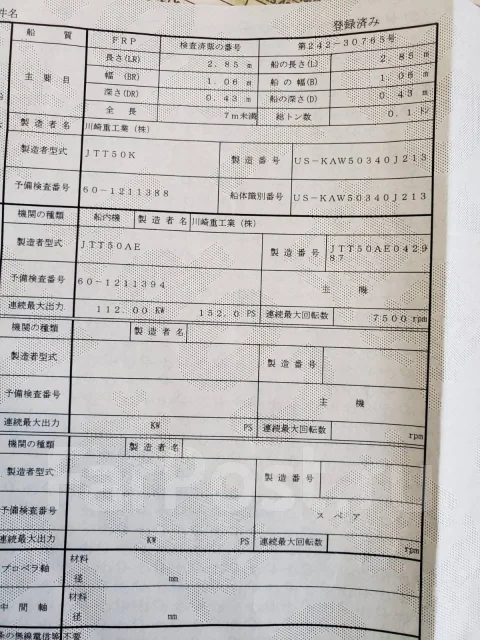 件名
登録済み
船 質 FRP 検査済票の番号 第242-30765号
主要目 長さ(LR) 2.85 m 船の長さ(L) 2.85 m
幅 (BR) 1.06 m 船の幅(B) 1.06 m
深さ(DR) 0.43 m 船の深さ(D) 0.43 m
全 長 7m未満 総トン数 0.1 トン
製造者名 川崎重工業(株)
製造者型式 JTT50K 製造番号 US-KAW50340J213
予備検査番号 60-1211388 船体識別番号 US-KAW50340J213
機関の種類 船内機 製造者名 川崎重工業(株)
製造者型式 JTT50AE 製造番号 JTT50AE0429
87
予備検査番号 60-1211394 主 機
連続最大出力 112.00 KW 152.0 PS 連続最大回転数 7500 rpm
機関の種類 製造者名
製造者型式 製造番号
予備検査番号 主 機
連続最大出力 KW PS 連続最大回転数 rpm
機関の種類 製造者名
製造者型式 製造番号
予備検査番号 スペア
連続最大出力 KW PS 連続最大回転数 rpm
プロペラ軸 材料
径 mm
中間軸 材料
径 mm
条の無線電信等不要
farPost.ru